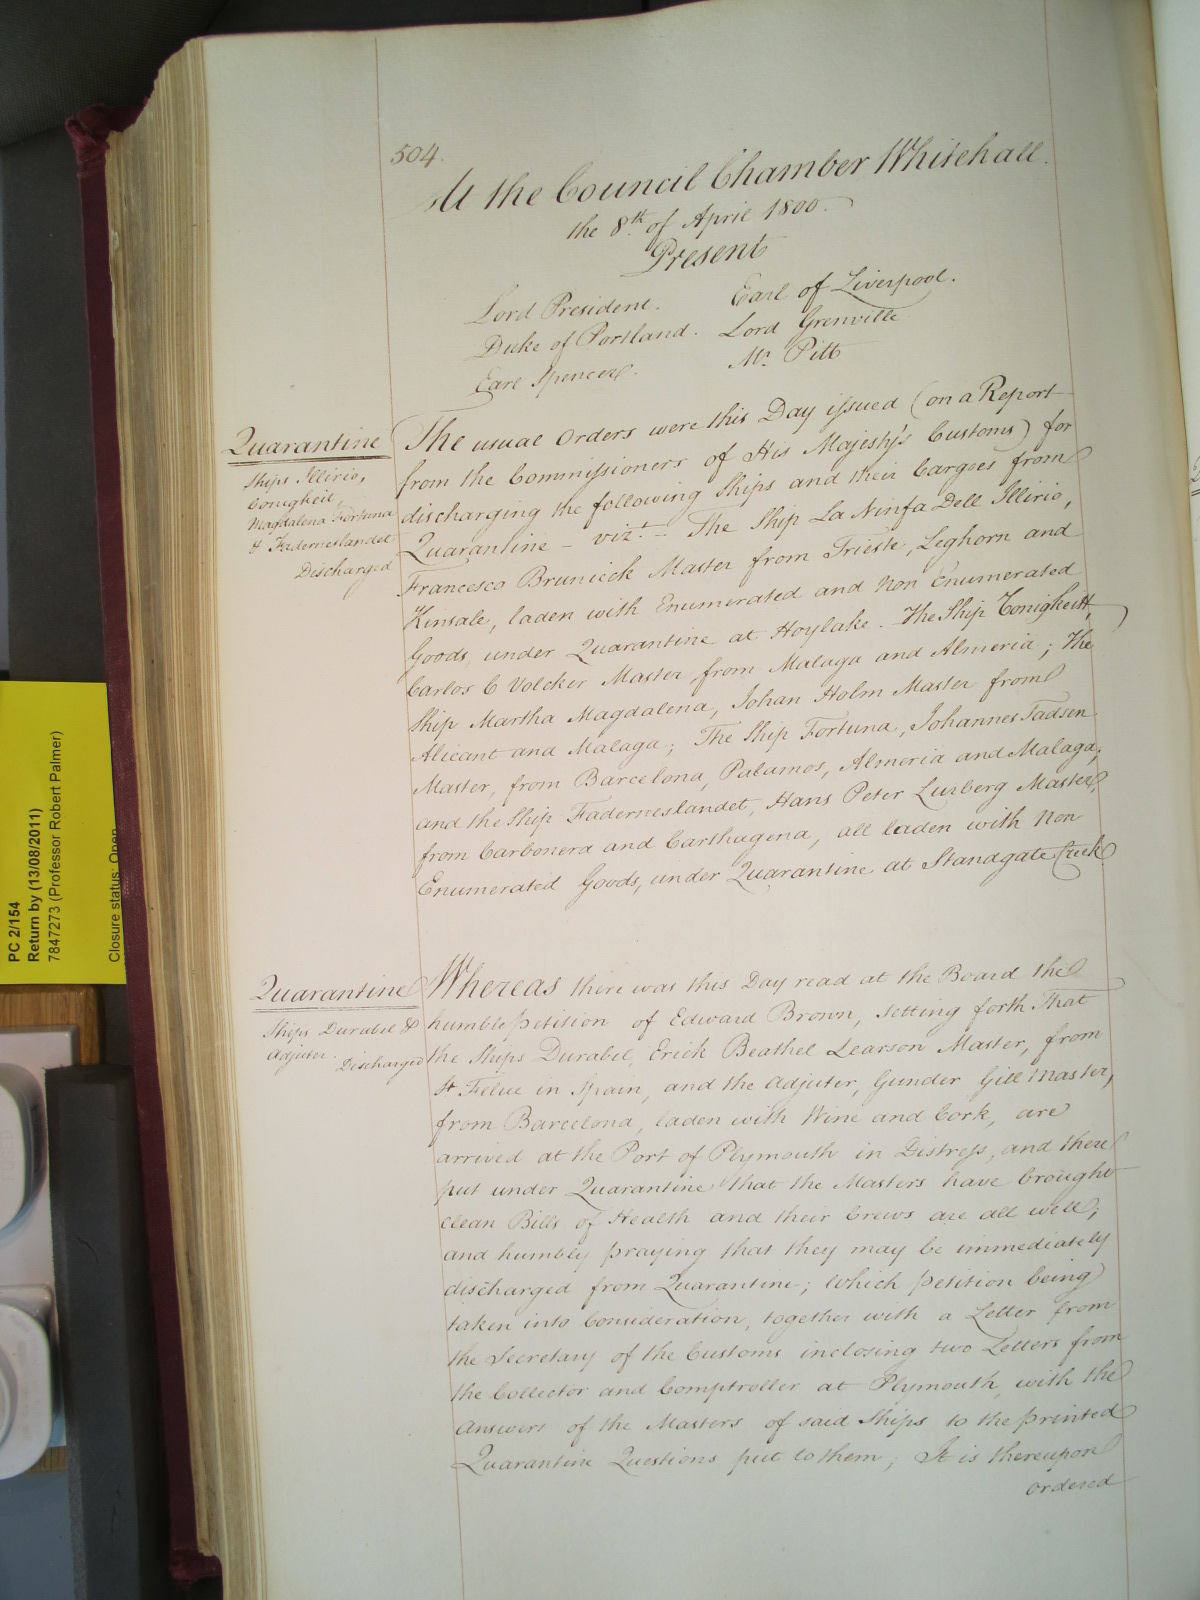 504.
At the Council Chamber Whitehall.
the 8th. of April 1800.
Present
Lord President. Earl of Liverpool.
Duke of Portland. Lord Grenville
Earl Spencer. Mr. Pitt
Quarantine
Ships Illirio,
Conigheit,
Magdalena Fortuna
& Faderneslandet
Discharged
The usual Orders were this Day issued (on a Report
from the Commissioners of His Majesty's Customs) for
discharging the following Ships and their Cargoes from
Quarantine – vizt. – The Ship La Ninfa Dell Illirio,
Francesco Brunieck Master from Trieste, Leghorn and
Kinsale, laden with Enumerated and Non Enumerated
Goods, under Quarantine at Hoylake. The Ship Conigheitt,
Carlos C Volcker Master, from Malaga and Almeria; The
Ship Martha Magdalena, Johan Holm Master from
Alicant and Malaga; The Ship Fortuna, Johannes Tadsen
Master, from Barcelona, Palamos, Almeria and Malaga;
and the Ship Faderneslandet, Hans Peter Lurberg Master,
from Carbonera and Carthagena, all laden with Non
Enumerated Goods, under Quarantine at Standgate Creek
Quarantine
Ships Durabel &
Adjuter.
Discharged
Whereas there was this Day read at the Board the
humble petition of Edward Brown, setting forth That
the Ships Durabel, Erick Beathel Learson Master, from
St Felue in Spain, and the Adjuter, Gunder Gill Master,
from Barcelona, laden with Wine and Cork, are
arrived at the Port of Plymouth in Distress, and there
put under Quarantine that the Masters have brought
clean Bills of Health and their Crews are all well;
and humbly praying that they may be immediately
discharged from Quarantine; Which petition being
taken into Consideration, together with a Letter from
the Secretary of the Customs inclosing two Letters from
the Collector and Comptroller at Plymouth, with the
Answers of the Masters of said Ships to the printed
Quarantine Questions put to them; It is thereupon
ordered
PC 2/154
Return by (13/08/2011)
7847273 (Professor Robert Palmer)
Closure status: Open